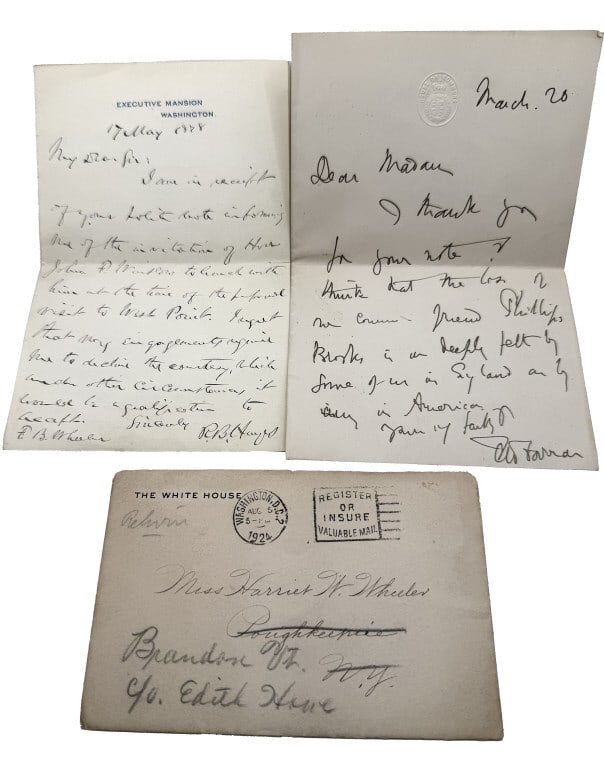 EXECUTIVE MANSION
WASHINGTON.
17 May 1878
My dear Sir:
I am in receipt
of your polite note informing
me of the invitation of Hon
John F. Winslow to lunch with
him at the time of the proposed
visit to West Point. I regret
that my engagements require
me to decline the courtesy, which
under other circumstances it
would be a gratification to
accept.
Sincerely
R. B. Hayes
F. B. Wheeler
March. 20
Dear Madam
I thank you
for your note. I
think that the loss of
our common friend Phillips
Brooks is as deeply felt by
some of us in England as by
many in America
Yours
F W Farrar
THE WHITE HOUSE
WASHINGTON, D.C. 2
AUG 5
5-PM
1924
REGISTER
OR
INSURE
VALUABLE MAIL
Miss Harriet W. Wheeler
Poughkeepsie
N.Y.
Brandon Vt.
c/o. Edith Howe